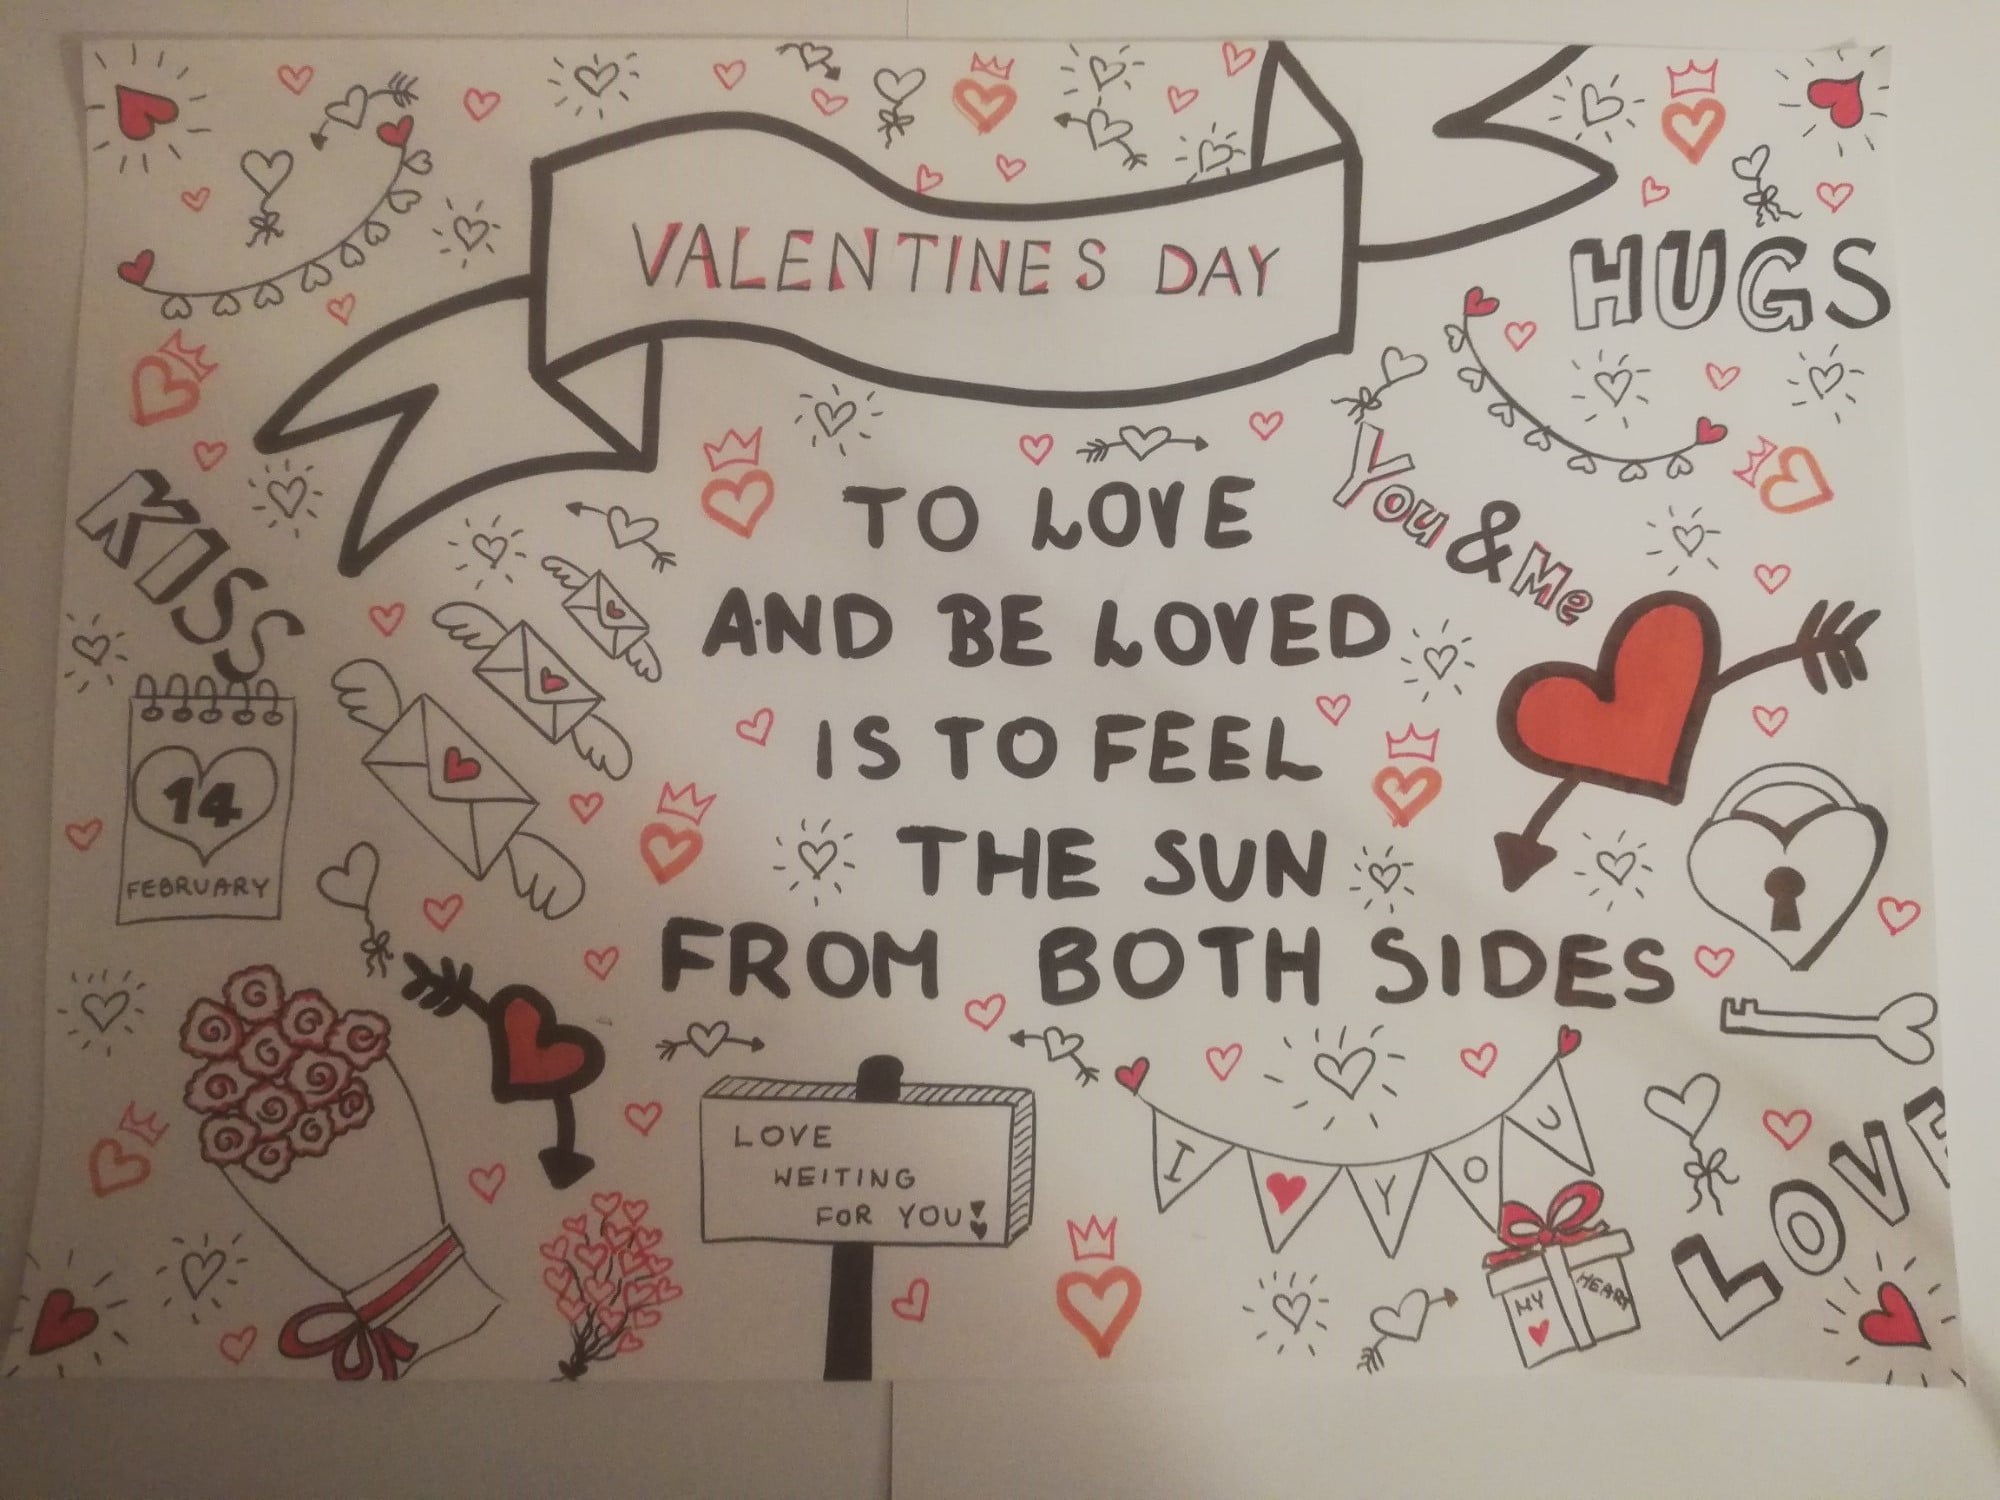 VALENTINES DAY
HUGS
KISS
You & Me
TO LOVE
AND BE LOVED
IS TO FEEL
THE SUN
FROM BOTH SIDES
14
FEBRUARY
LOVE
WEITING
FOR YOU
I YOU
MY HEART
LOVE